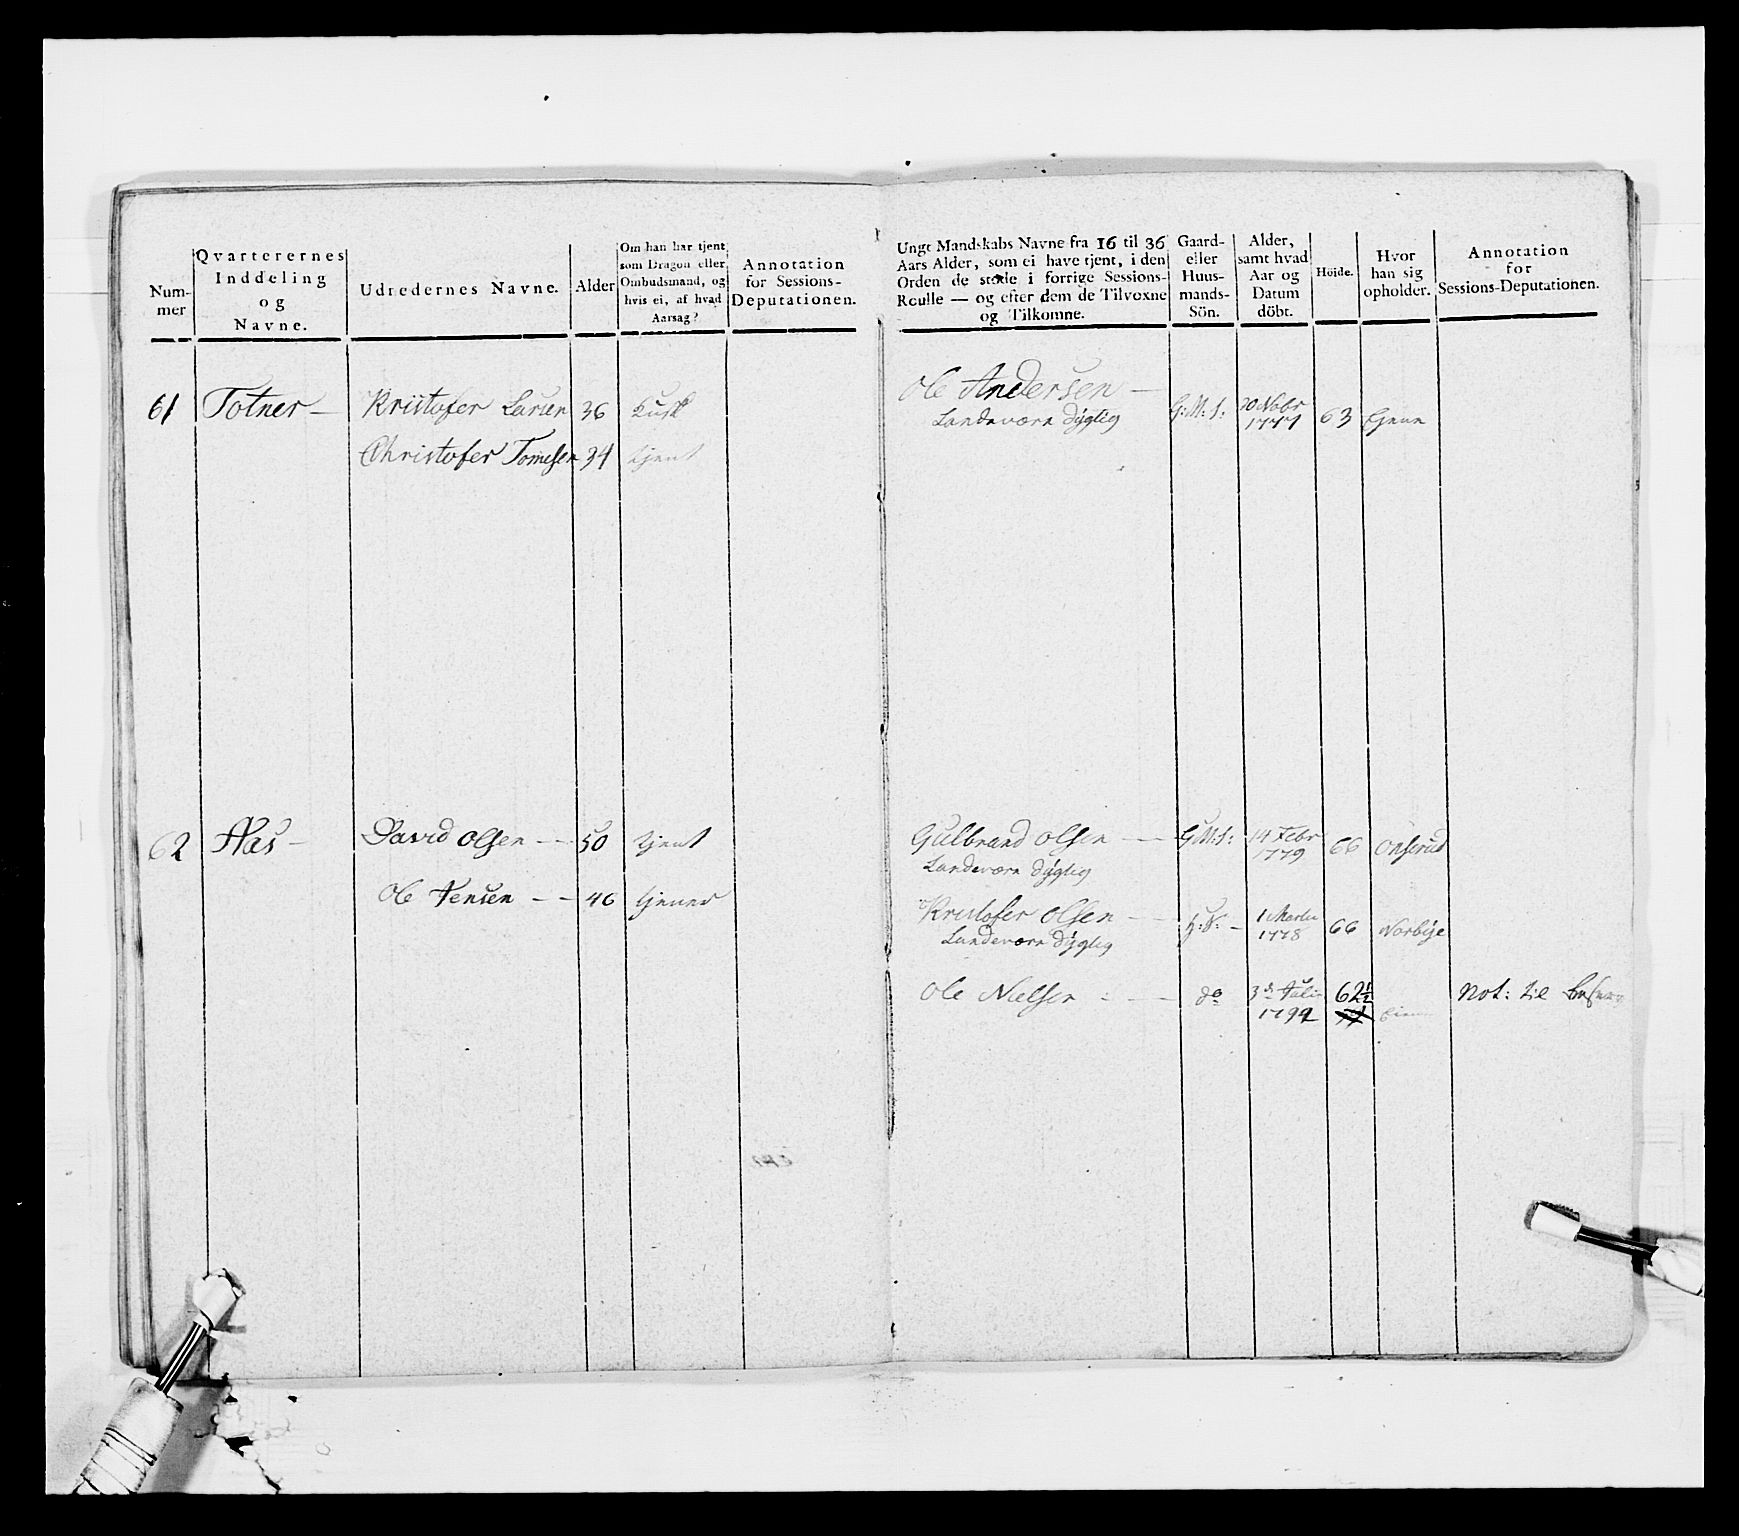 Num-
mer
Qvarterernes
Inddeling
og
Navne.
Udredernes Navne.
Alder
Om han har tjent
som Dragon eller
Ombudsmand, og
hvis ei, af hvad
Aarsag?
Annotation
for Sessions-
Deputationen.
61 Totner — Kristofer Larsen 36
Christofer Tomesen 34 tjent
62 Aas — David Olsen — 50 tjent
Ole Jensen — — 46 tjener
Ungt Mandskabs Navne fra 16 til 36
Aars Alder, som ei have tjent, i den
Orden de stode i forrige Sessions-
Roulle — og efter dem de Tilvoxne
og Tilkomne.
Gaard-
eller
Huus-
mands-
Sön.
Alder,
samt hvad
Aar og
Datum
döbt.
Höjde.
Hvor
han sig
opholder.
Annotation
for
Sessions-Deputationen.
Ole Andersen — G:M:S: 20 Nobr
Landeværn dÿgtig 1777 63
Gulbrand Olsen — G:M:S: 14 Febr 66 Onserud
Landeværn dÿgtig 1779
Kristofer Olsen — 1 Martii 66 Norbÿe
Landeværn dÿgtig 1778
Ole Nielsen — do 3de Julii 62½ Not: til